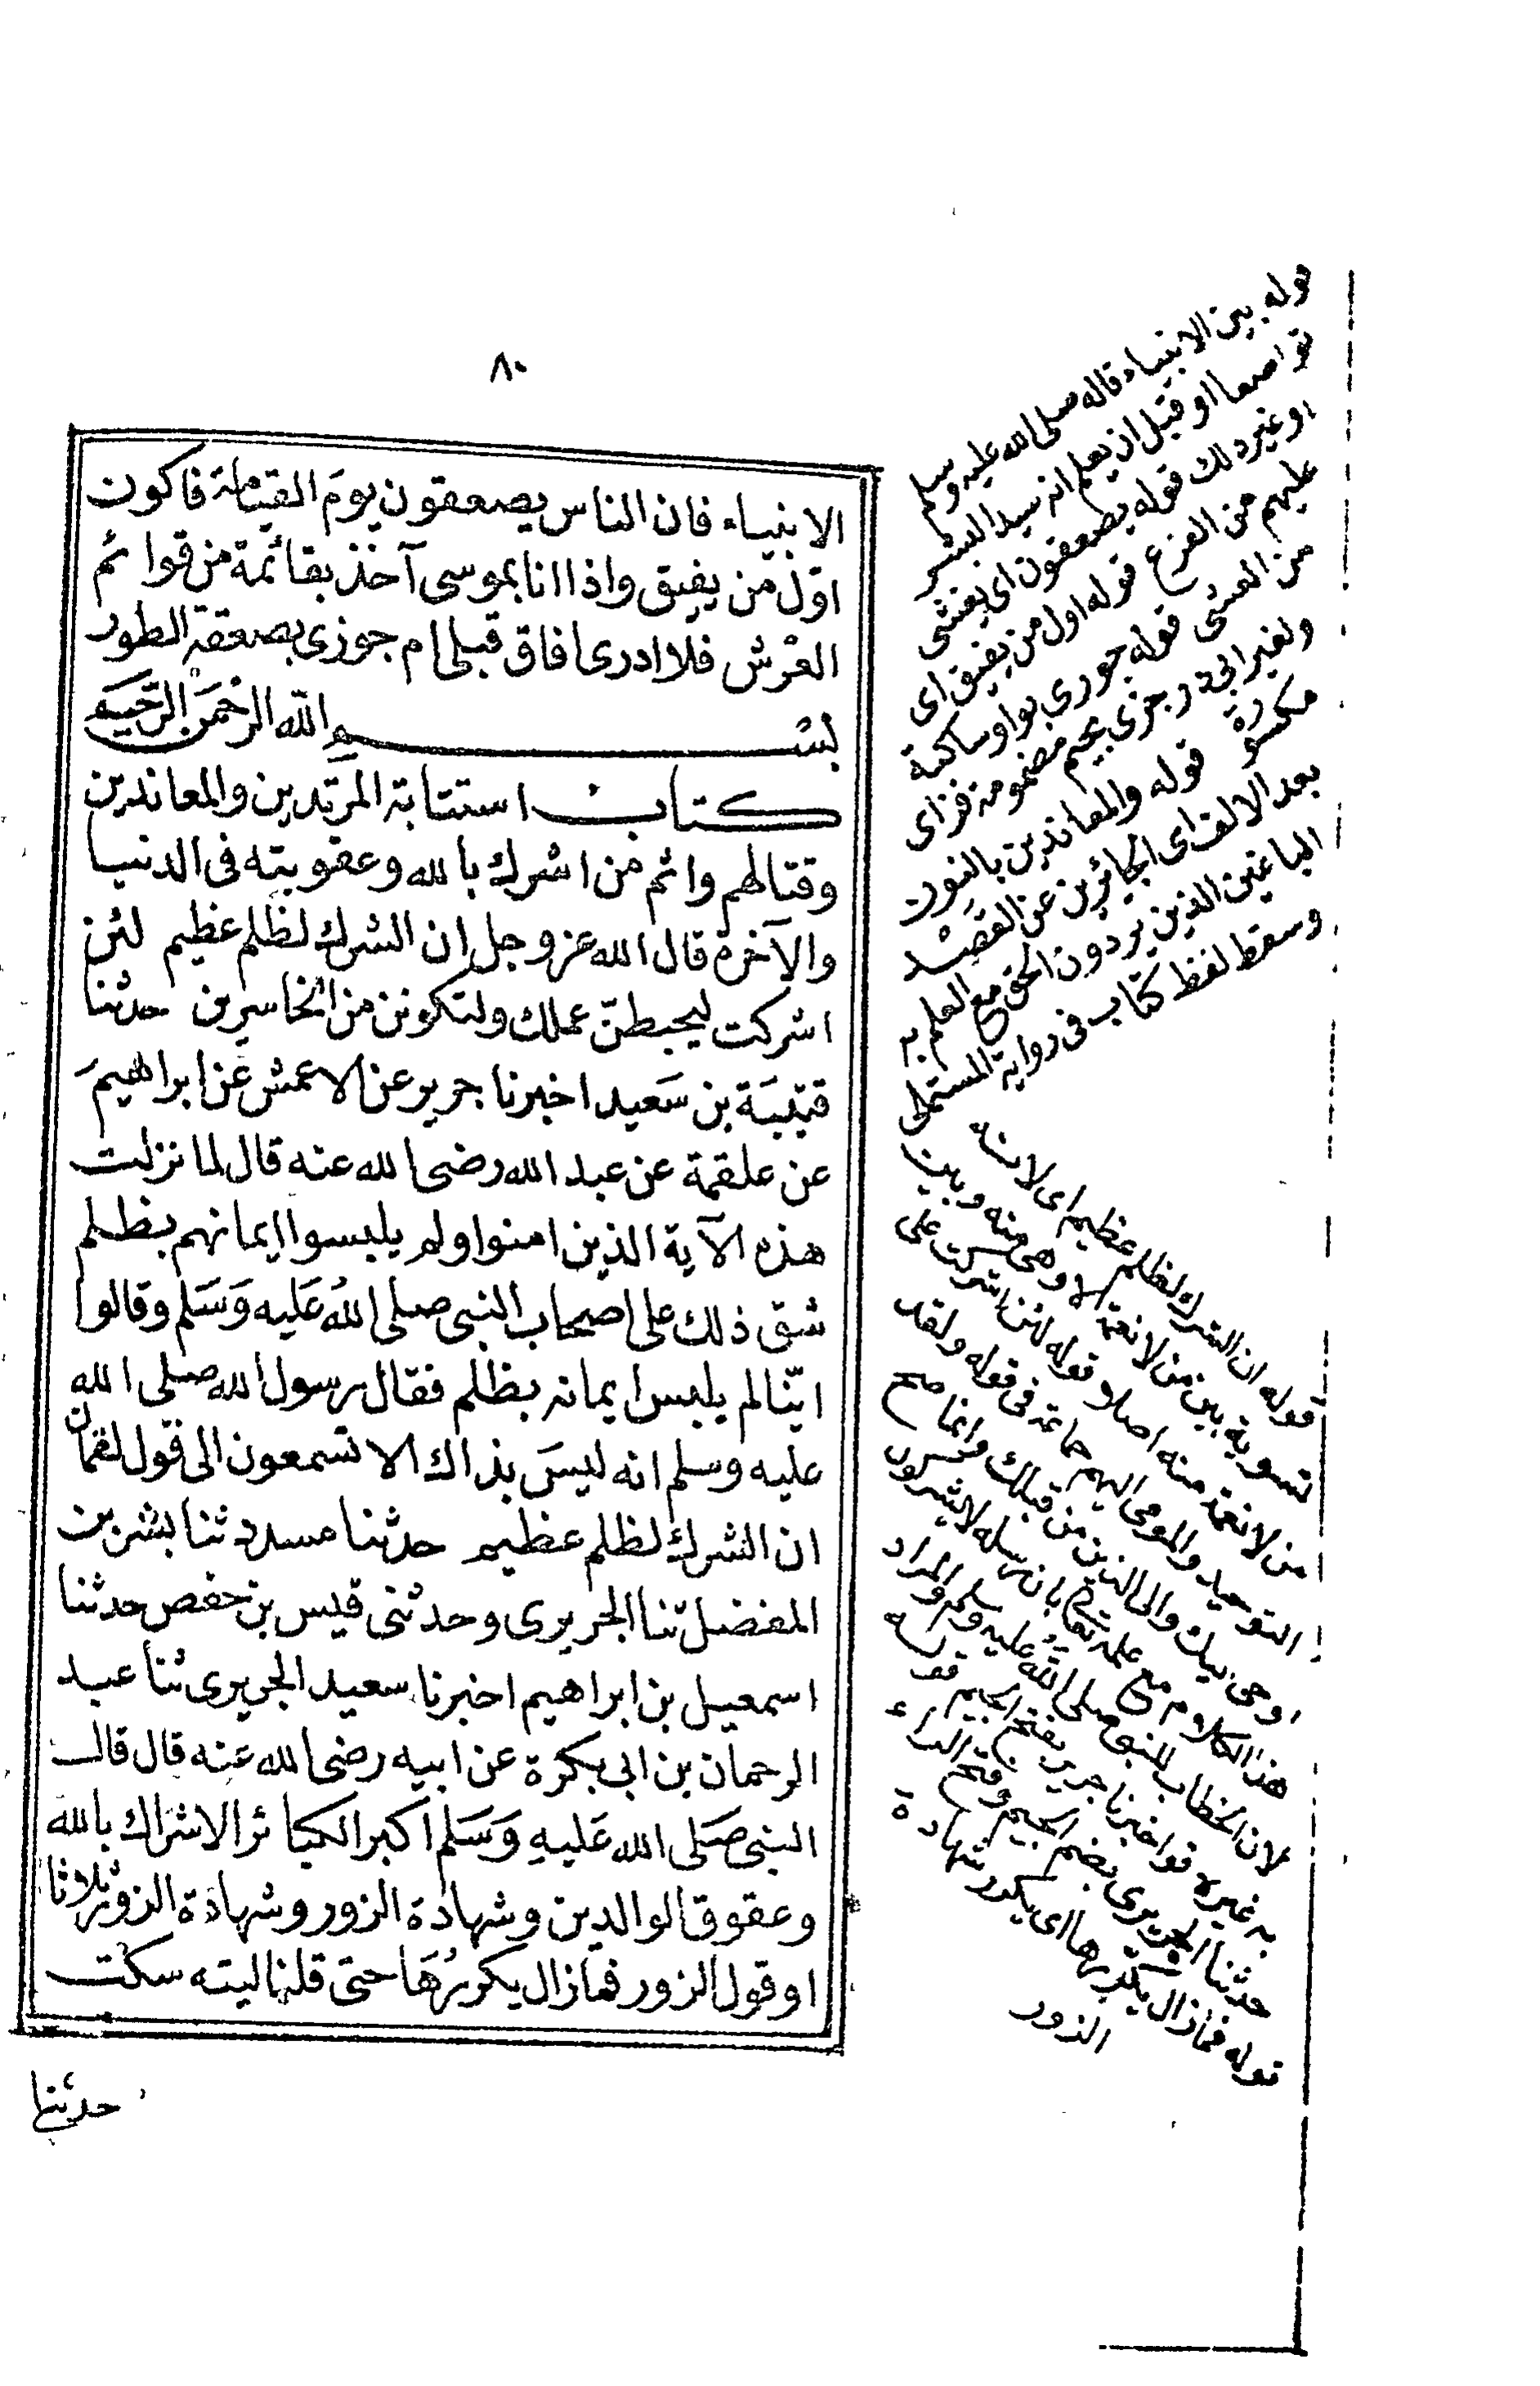 ٨٠
الانبياء فان الناس يصعقون يومَ القيامة فاكون
اوّل من يفيق واذا انا بموسى آخذ بقائمة من قوائم
العرْش فلا ادرى افاق قبلى ام جوزى بصعقة الطور
بسْم الله الرحْمَن الرَّحيم
كتاب استتابة المرتدين والمعاندين
وقتالهم واثم من اشرك بالله وعقوبته فى الدنيا
والآخرة قال الله عز وجل ان الشرك لظلم عظيم لئن
اشركت ليحبطنّ عملك ولتكونن من الخاسرين حدثنا
قتيبَة بن سَعيد اخبرنا جرير عن الاعمش عن ابراهيمَ
عن علقمة عن عبد الله رضى الله عنه قال لما نزلت
هذه الآية الذين امنوا ولم يلبسوا ايمانهم بظلم
شق ذلك على اصحاب النبى صلى اللهُ عَليه وَسَلم وقالوا
ايّنا لم يلبس ايمانه بظلم فقال رسول الله صلى الله
عليه وسلم انه ليسَ بذاك الا تسمعون الى قول لقمان
ان الشرك لظلم عظيم حدثنا مسدد ثنا بشر بن
المفضل ثنا الجريرى وحدثنى قيس بن حفص حدثنا
اسمعيل بن ابراهيم اخبرنا سعيد الجريرى ثنا عبد
الرحمان بن ابى بكرة عن ابيه رضى الله عنه قال قال
النبى صَلى الله عَليهِ وَسَلم اكبر الكبائر الاشراك بالله
وعقوق الوالدين وشهادة الزور وشهادة الزور ثلاثا
او قول الزور فما زال يكررُهَا حتى قلنا ليته سكت
حدثنا
قوله بين الانبياء قاله صلى الله عليه وسلم
تواضعا او قبل ان يعلم انه سيد البشر
او غير ذلك قوله يصعقون اى يغشى
عليهم من الفزع قوله اول من يفيق اى
من الغشى قوله جوزى بواو ساكنة
ولغير ابى ذر جزى بجيم مضمومة فزاى
مكسورة قوله والمعاندين بالنون
بعد الالف اى الجائرين عن القصد
الباغين الذين يردون الحق مع العلم به
وسقط لفظ كتاب فى رواية المستملى
قوله ان الشرك لظلم عظيم اى لانه
تسوية بين من لا نعمة الا وهى منه وبين
من لا نعمة منه اصلا قوله لئن اشركت على
التوحيد والموحى اليهم جماعة فى قوله ولقد
اوحى اليك والى الذين من قبلك وانما صح
هذا الكلام مع علمه تعالى بان رسله لا يشركون
لان الخطاب للنبى صلى الله عليه وسلم والمراد
به غيره قوله اخبرنا جرير بفتح الجيم قوله
حدثنا الجريرى بضم الجيم وفتح الراء
قوله فما زال يكررها اى يكرر شهادة
الزور